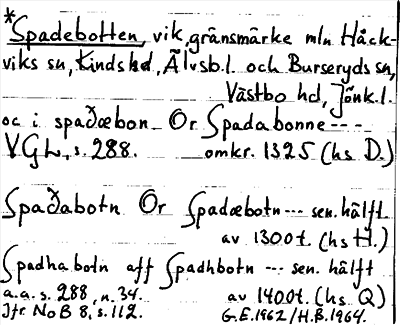 *Spadebotten, vik, gränsmärke mln Håck-
viks sn, Kinds hd, Älvsb.l. och Burseryds sn,
Västbo hd, Jönk.l.
oc i. spaðæbon. Or Spadabonne ---
VGL, s. 288. omkr. 1325 (hs D.)
Spaðabotn Or Spadæbotn --- sen. hälft.
av 1300t. (hs H.)
Spadhabotn aff Spadhbotn --- sen. hälft
a.a. s. 288, n. 34. av 1400t. (hs Q)
Jfr NoB 8, s. 112. G.E. 1962/H.B. 1964.